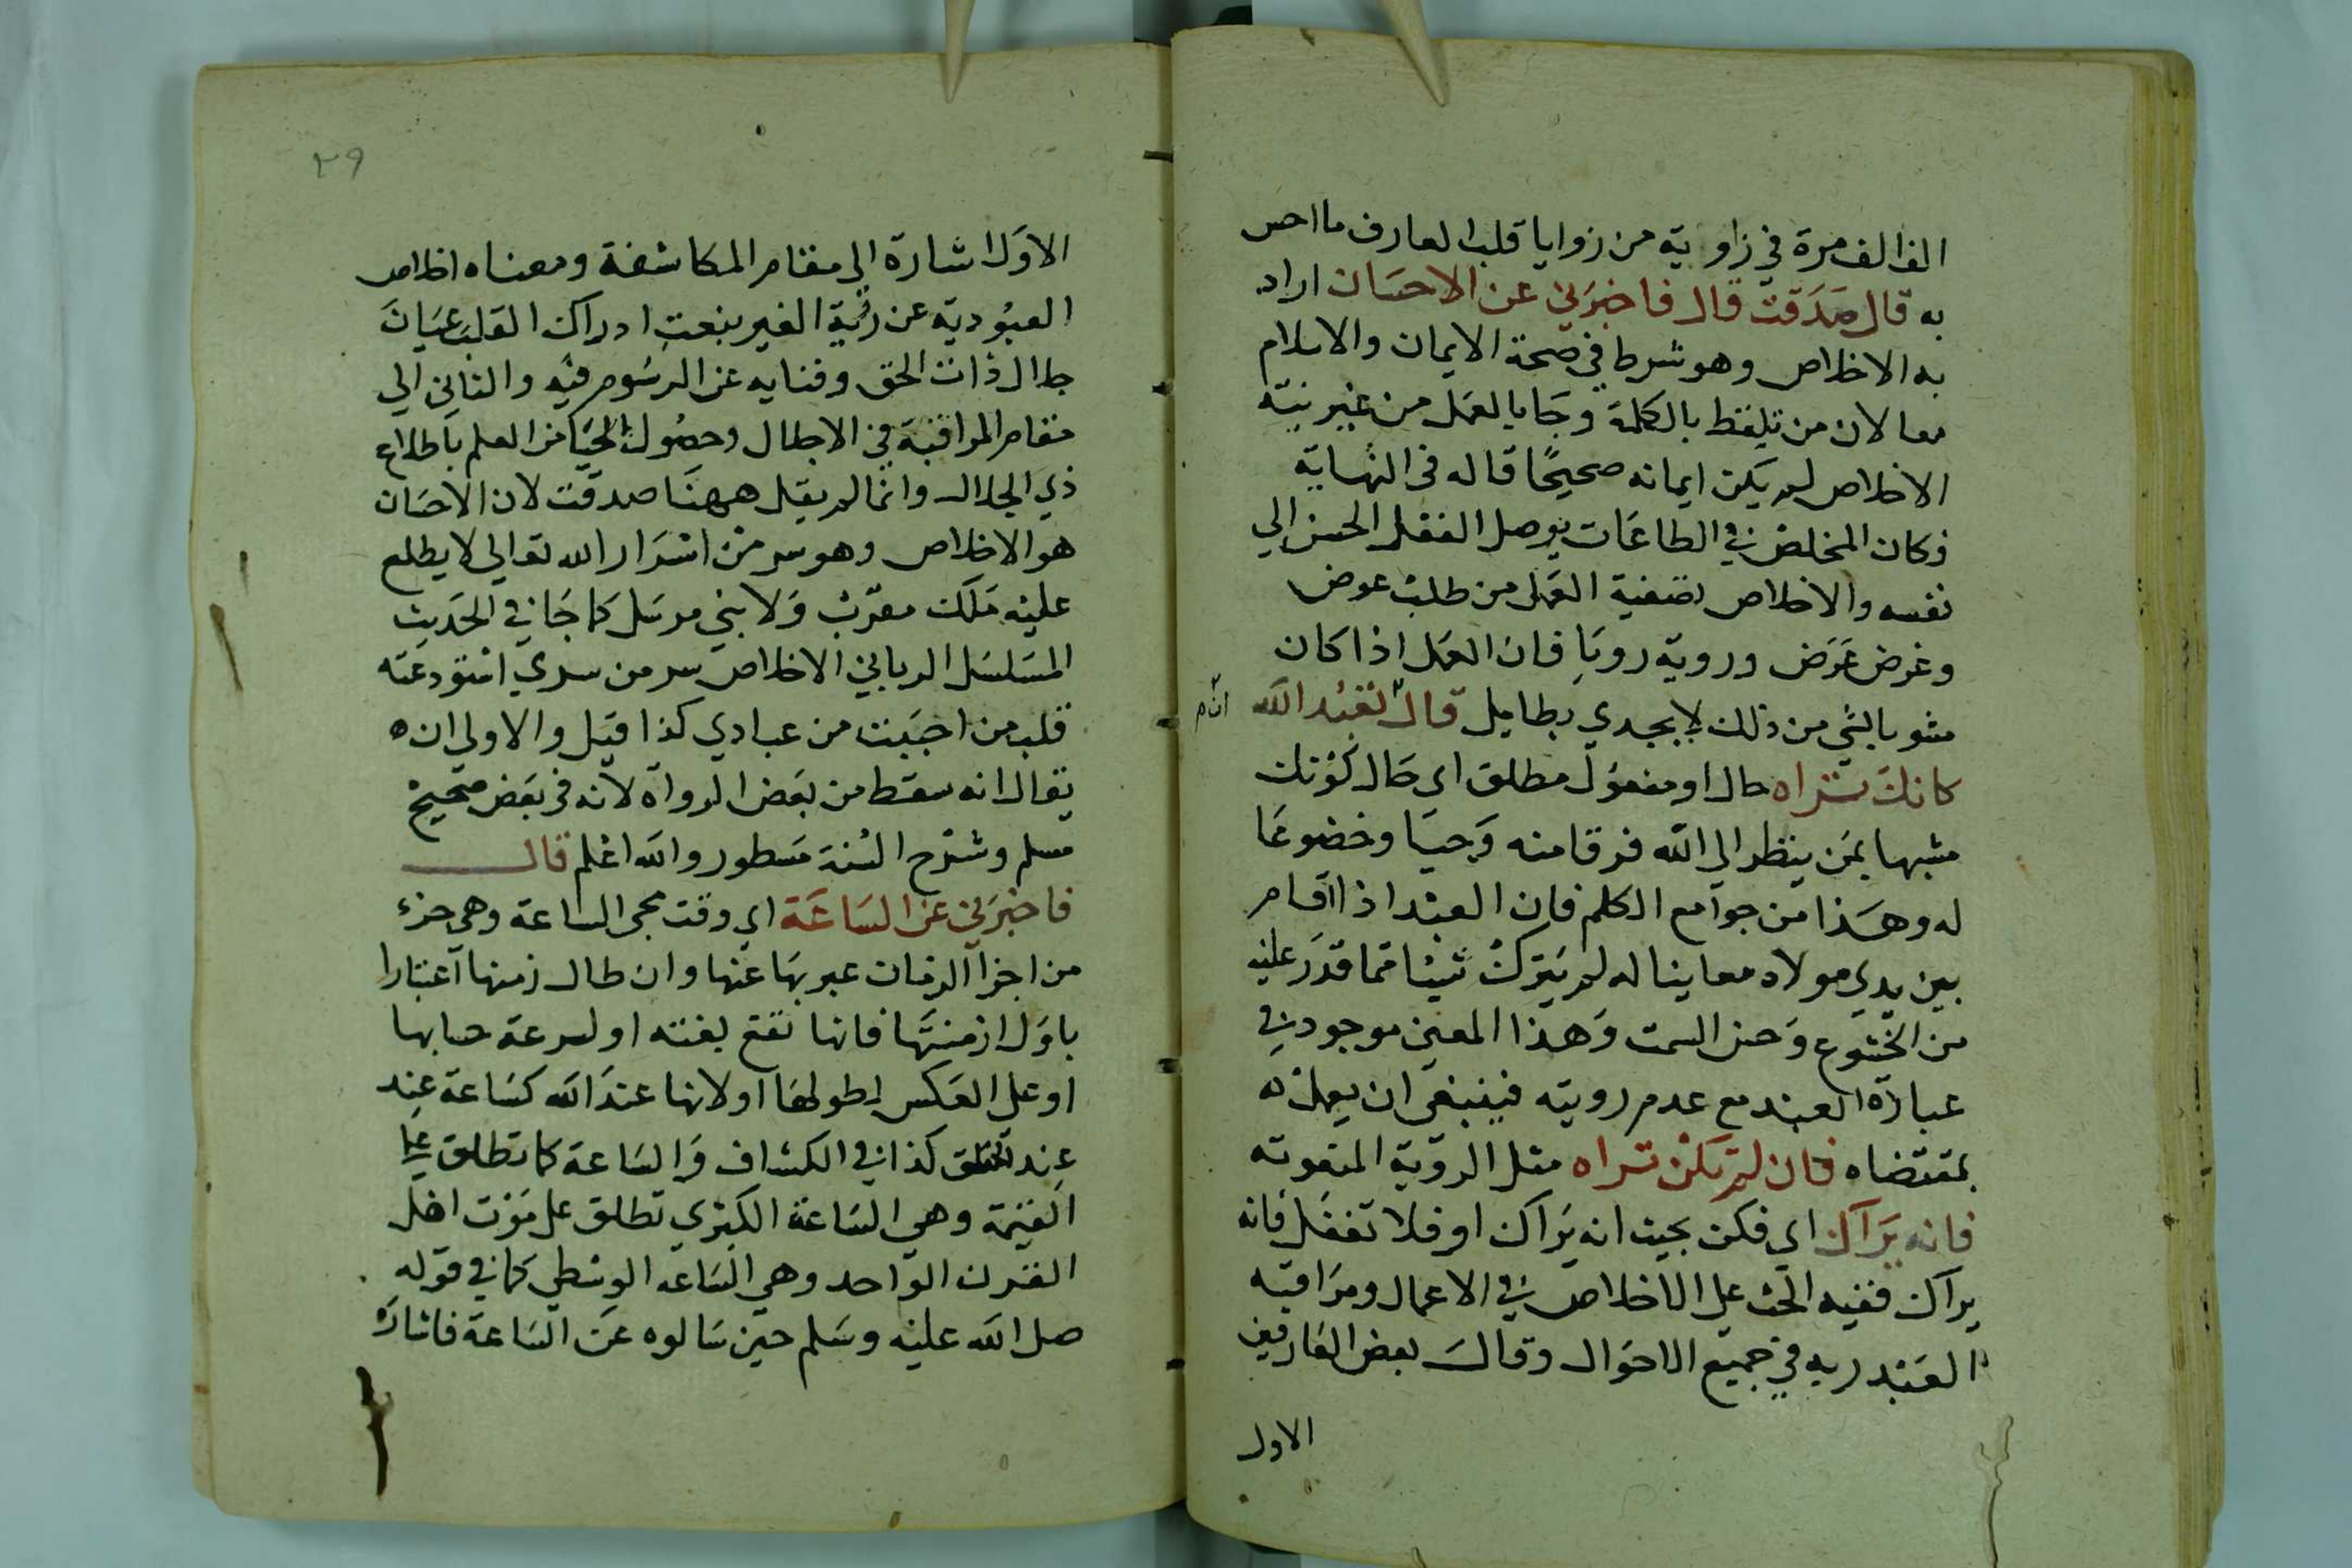 الف الف مرة في زاوية من زوايا قلب العارف ما احس
به قال صَدَقت قال فاخبرَني عن الاحسَان اراد
به الاخلاص وهو شرط في صحة الايمان والاسلام
معا لان من تلفظ بالكلمة وجَا بالعمل من غير نية
الاخلاص لم يكن ايمانه صحيحًا قاله في النهاية
فكان المخلص في الطاعَات يوصل الفعل الحسن الي
نفسه والاخلاص تصفية العمل من طلب عوض
وغرض عَرَض وروية رويا فان العمل اذا كان
مشوبا بشي من ذلك لا يجدي بطايل قال ان تعبُد الله
كانك تراه حال او مفعول مطلق اي حَال كونك
مشبها بمَن ينظر الي الله فرقا منه وَحيَا وخضوعَا
له وهَذا من جوامع الكلم فان العبد اذا اقام
بين يدي مولاه معاينا له لم يَترك شيئا مما قدَر عليه
من الخشوع وَحسن السمت وَهذا المعني موجود في
عبادة العبد مع عدم رويته فينبغي ان يعمل
بمقتضاه فان لم تكن تراه مثل الروية المنعوته
فانه يَراك اي فكن بحيث انه يَراك او فلا تغفل فانه
يراك ففيه الحث علي الاخلاص في الاعمال ومرَاقبة
العَبد ربه في جميع الاحوَال وقالَ بعض العَارفين
الاول
٢٩
الاوَل اشارة الي مقام المكاشفة ومعناه اخلاص
العبُودية عن رُية الغير بنعت ادراك القلب عيَان
جلال ذات الحق وفنايه عن الرسُوم فيه والثاني الي
مقام المراقبَة في الاجلال وحصُول الحيَا من العلم باطلاع
ذي الجلال وانما لم يقل ههنَا صدقت لان الاحسَان
هو الاخلاص وهو سر من اسْرَار الله تعالي لا يطلع
عليه مَلَك مقرّب وَلا نبي مرسَل كما جَا في الحَديث
المسَلسَل الرباني الاخلاص سر من سري استودعَته
قلب من احبَبت من عبادي كذا قيَل والاولي ان
يقال انه سقط من بعَض الرواه لانه في بعَض صحيح
مسلم وشرح السُنة مَسطور والله اعلم قال
فاخبرَني عن السَاعَة اي وقت مجي الساعة وهي جزء
من اجزآ الزمان عبر بهَا عنها وان طال زمنها اعتبارا
باوَل ازمنتها فانها تقع بغتة او لسرعة حسابها
او علي العَكس لطولهَا او لانها عندَ الله كسَاعة عند
عند الخلق كذا في الكشاف وَالسَاعة كما تطلق علي
القيٰمة وهي السَاعة الكبري تطلق علي مَوت اهل
القرن الوَاحد وهي السَاعه الوسطي كما في قوله
صلي الله عليه وسَلم حين سَالوه عَن السَاعة فاشارَ